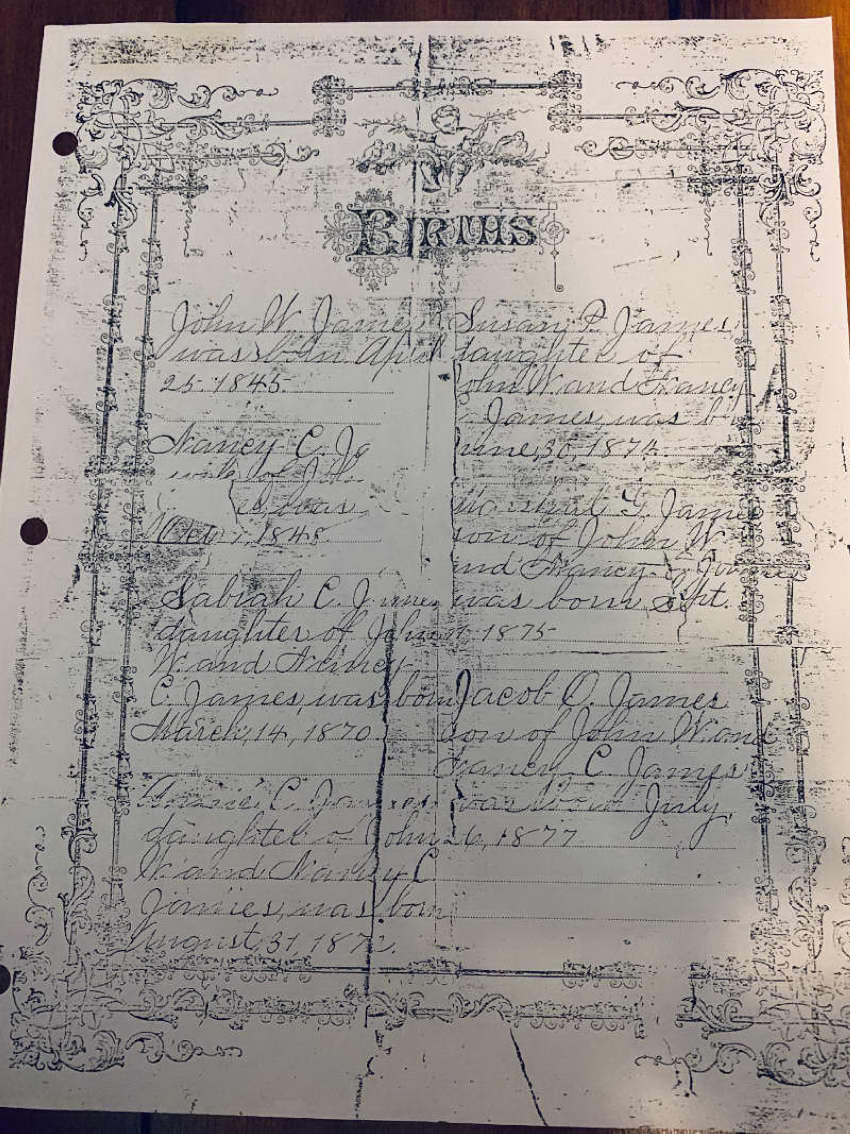 BIRTHS
John W. James
was born April
25. 1845.
Nancy C. Ja
wife of J. W.
es, was
1, 1848.
Sabrah C. James,
daughter of John
W. and Nancy
C. James, was born
March, 14, 1870.
C. James
daughter of John
W. and Nancy C
James, was born
August, 31, 187
Susan P. James,
daughter of
John W. and Nancy
C. James, was b
June, 30, 1874.
G. James
son of John W.
and Nancy C. James
was born Sept.
11, 1875
Jacob O. James
son of John W. and
Nancy C. James
was born July,
26, 1877